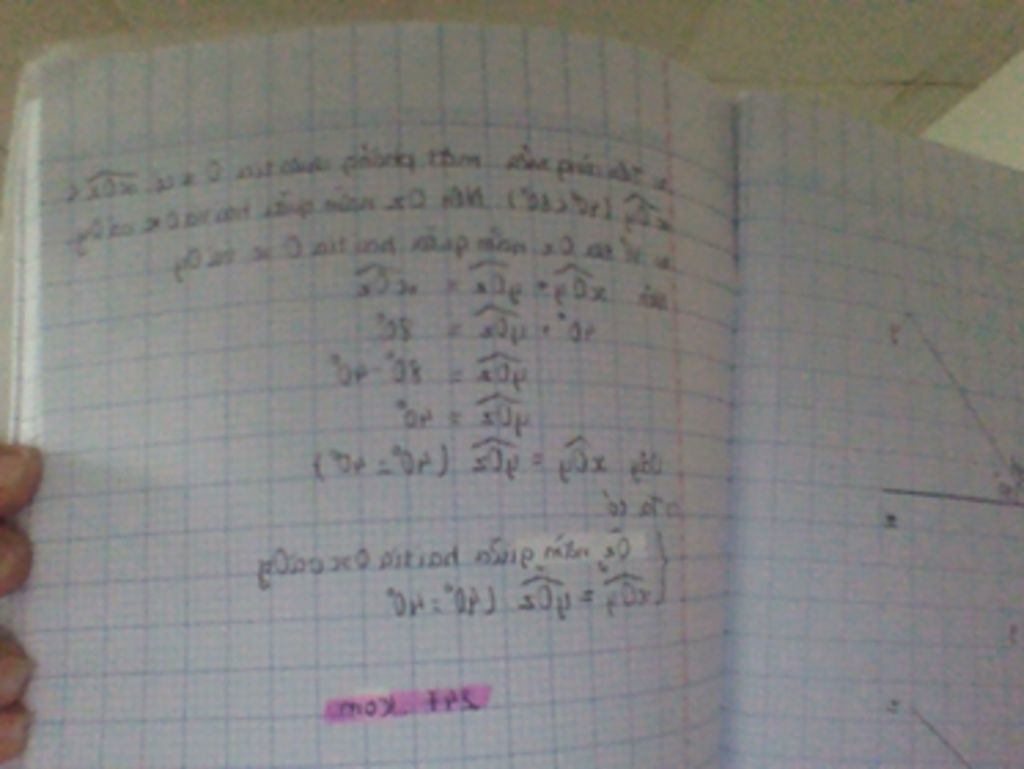 Trên cùng nửa mặt phẳng chứa tia Ox có xOz <
xOy (40° < 80°) Nên Oz nằm giữa hai tia Ox và Oy
Vì tia Oz nằm giữa hai tia Ox và Oy
nên xOy + yOz = xOz
40° + yOz = 80°
yOz = 80° - 40°
yOz = 40°
Vậy xOy = yOz (40° = 40°)
Ta có
Oz nằm giữa hai tia Ox và Oy
xOy = yOz (40° = 40
247 .kom
y
z
z